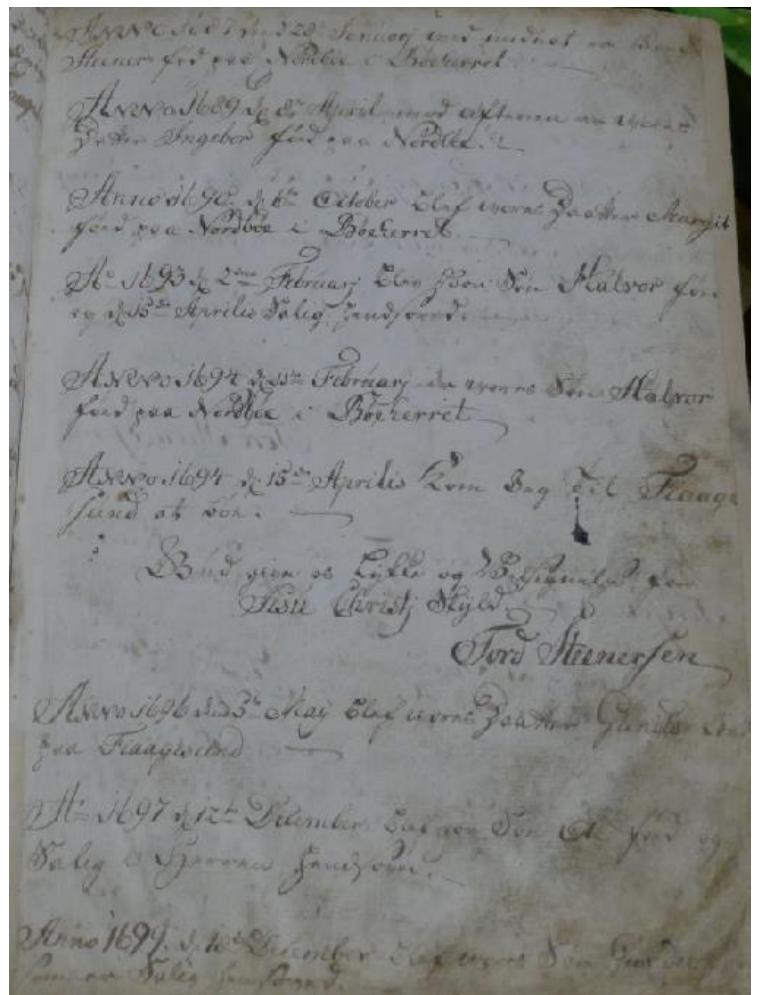 Anno 1687 den 28 Januarj ved midnat er
Steener fød paa Nordbøe i Bøeherret
Anno 1689 d. 8de Aprill mod aftenen er vores
Datter Ingebor fød paa Nordbø.
Anno 1690. d. 6te October blef vores Daatter Margit
fød paa Nordbøe i Bøeherret
Ao 1693 d. 2den Februarj blev Søn Halvor fød
og d. 15de Aprilis Salig hensofved.
Anno 1694 d. Februarj da vores Søn Halvor
fød paa Nordbøe i Bøeherret
Anno 1694 d. 15de Aprilis Kom Jeg til Flaage
Sund at boe.
Gud give os Lykke og Velsignelse for
Jesu Christj Skyld
Tord Steenersen
Anno 1696 den 3de Maij blef vores Daatter Gunild fød
paa Flaagesund
Ao 1697 d. 12te December blef vor Søn fød og
Salig i Herren hensofved.
Anno 1699. d. December blef vores Søn
som er Salig hensofved.